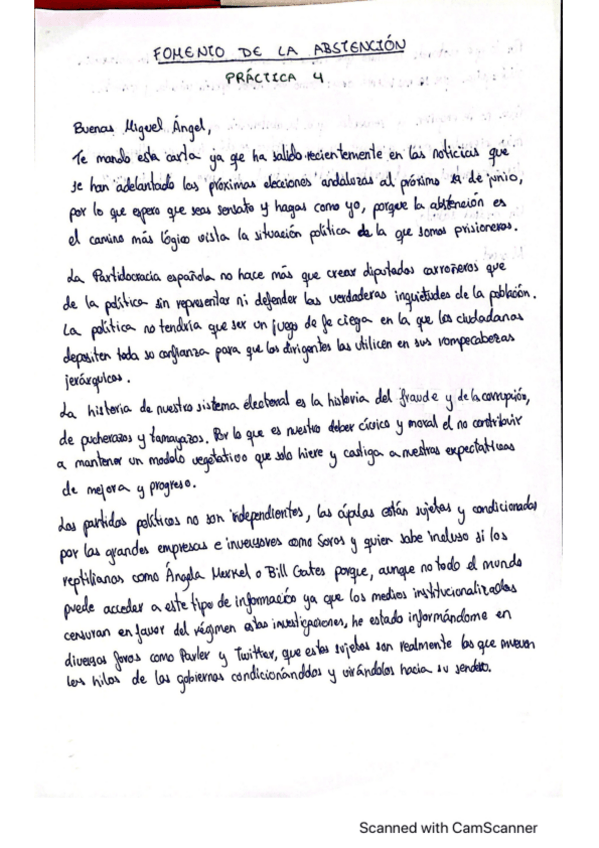 FOMENTO DE LA ABSTENCIÓN
PRÁCTICA 4
Buenas Miguel Ángel,
Te mando esta carta ya qe ha salido recientemente en las noticias que
se han adelantado las próximas elecciones andaluzas al próximo de junio,
por lo que espero que seas sensato y hagas como yo, porque la abstención es
el camino más lógico vista la situación política de la que somos prisioneros.
La Partidocracia española no hace más que crear diputados carroñeros que
de la política sin representar ni defender las verdaderas inquietudes de la población.
La política no tendría que ser un juego de fe ciega en la que los ciudadanos
depositen toda su confianza para que los dirigentes las utilicen en sus rompecabezas
jerárquicos.
La historia de nuestro sistema electoral es la historia del fraude y de la corrupción,
de pucherazos y tamayazos. Por lo que es nuestro deber cívico y moral el no contribuir
a mantener un modelo vegetativo que solo hiere y castiga a nuestras expectativas
de mejora y progreso.
Los partidos políticos no son independientes, las cúpulas están sujetas y condicionadas
por las grandes empresas e inversores como Soros y quien sabe incluso si los
reptilianos como Ángela Merkel o Bill Gates porque, aunque no todo el mundo
puede acceder a este tipo de información ya que los medios institucionalizados
censuran en favor del régimen estas investigaciones, he estado informándome en
diversos foros como Parler y Twitter, que estos sujetos son realmente los que mueven
los hilos de los gobiernos condicionánddos y virándolos hacia su sendero.
Scanned with CamScanner